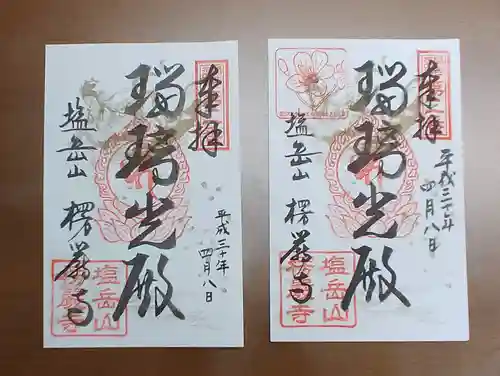 奉拝
平成三十年
四月八日
瑠璃光殿
塩岳山 楞厳寺
塩岳山
楞厳寺
奉拝
平成三十年
四月八日
瑠璃光殿
塩岳山 楞厳寺
塩岳山
楞厳寺